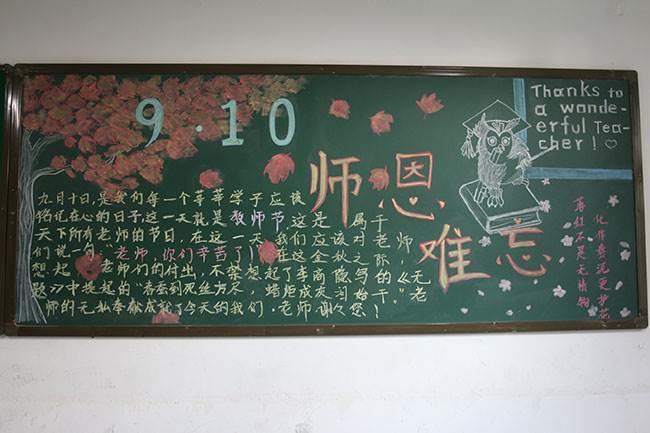 9·10
师恩
难忘
Thanks to
a wonde-
erful Tea-
cher!
九月十日,是我们每一个莘莘学子应该
铭记在心的日子,这一天就是教师节,这是属于
天下所有老师的节日,在这一天,我们应该对老师
们说一句:老师,你们辛苦了!在这金秋之际,
想起老师们的付出,不禁想起了李商隐写的《无
题》中提起的"春蚕到死丝方尽,蜡炬成灰泪始干",老
师的无私奉献成就了今天的我们.老师谢々您!
落红不是无情物
化作春泥更护花